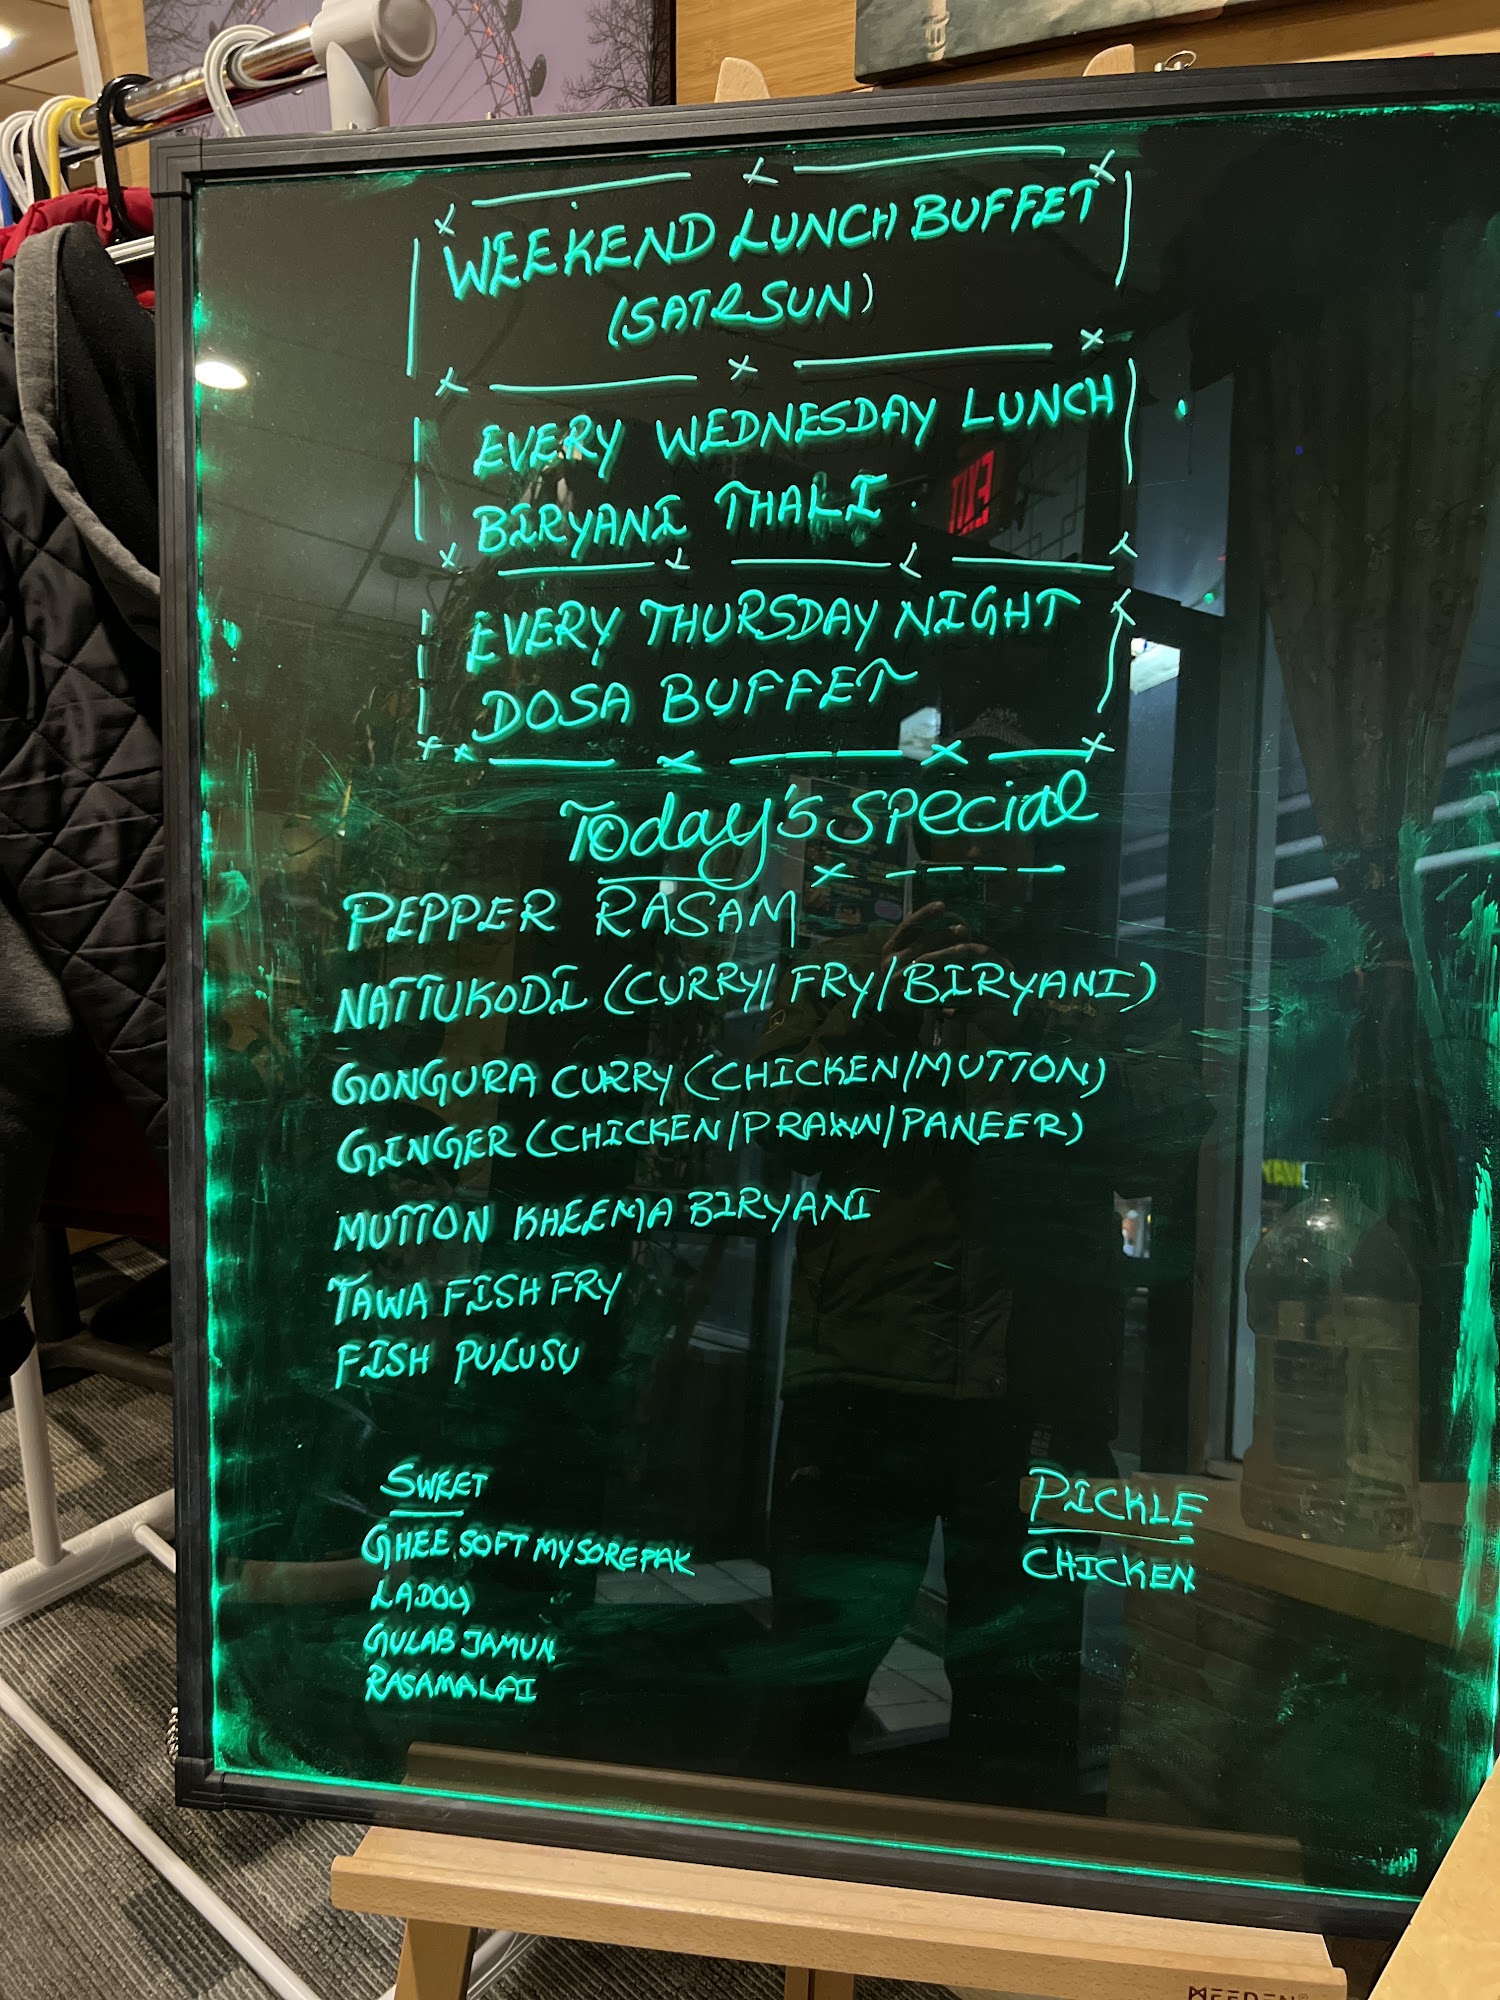 WEEKEND LUNCH BUFFET
(SAT&SUN)
EVERY WEDNESDAY LUNCH
BIRYANI THALI.
EVERY THURSDAY NIGHT
DOSA BUFFET
Today's Special
PEPPER RASAM
NATTUKODI (CURRY/FRY/BIRYANI)
GONGURA CURRY (CHICKEN/MUTTON)
GINGER (CHICKEN/PRAWN/PANEER)
MUTTON KHEEMA BIRYANI
TAWA FISH FRY
FISH PULUSU
SWEET
GHEE SOFT MYSOREPAK
LADOO
GULAB JAMUN
RASAMALAI
PICKLE
CHICKEN
EXIT
MEEDEN